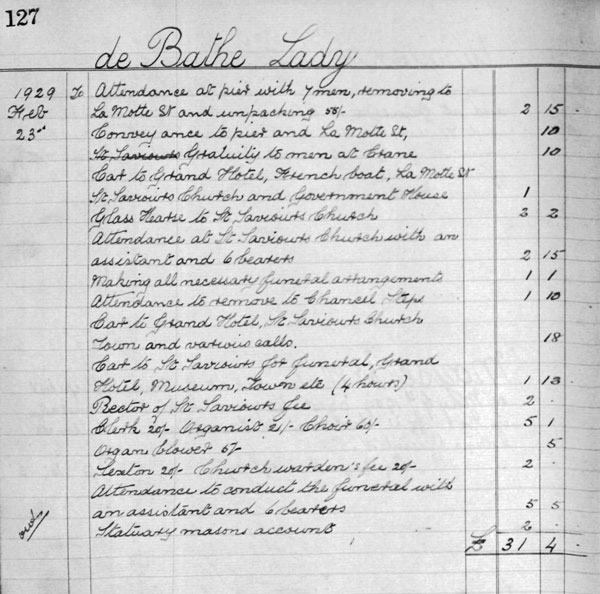 127
de Bathe Lady
1929 To Attendance at pier with 7 men, removing to
Feb La Motte St and unpacking 55/- 2 15 -
23rd Conveyance to pier and La Motte St, 10 -
St Saviours Gratuity to men at Crane 10 -
Car to Grand Hotel, French boat, La Motte St
St Saviours Church and Government House 1 -
Glass Hearse to St Saviours Church 2 2
Attendance at St Saviours Church with an
assistant and 6 bearers 2 15 -
Making all necessary funeral arrangements 1 1
Attendance to remove to Chancel Steps 1 10
Car to Grand Hotel, St Saviours Church
Town and various calls. 18
Car to St Saviours for funeral, Grand
Hotel, Museum, Town etc (4 hours) 1 13 -
Rector of St Saviours fee 2 -
Clerk 20/- Organist 21/- Choir 60/- 5 1
Organ blower 5/- 5
Sexton 20/- Church warden's fee 20/- 2 -
Attendance to conduct the funeral with
an assistant and 6 bearers 5 5
Statuary masons account 2 -
£ 31 4 -